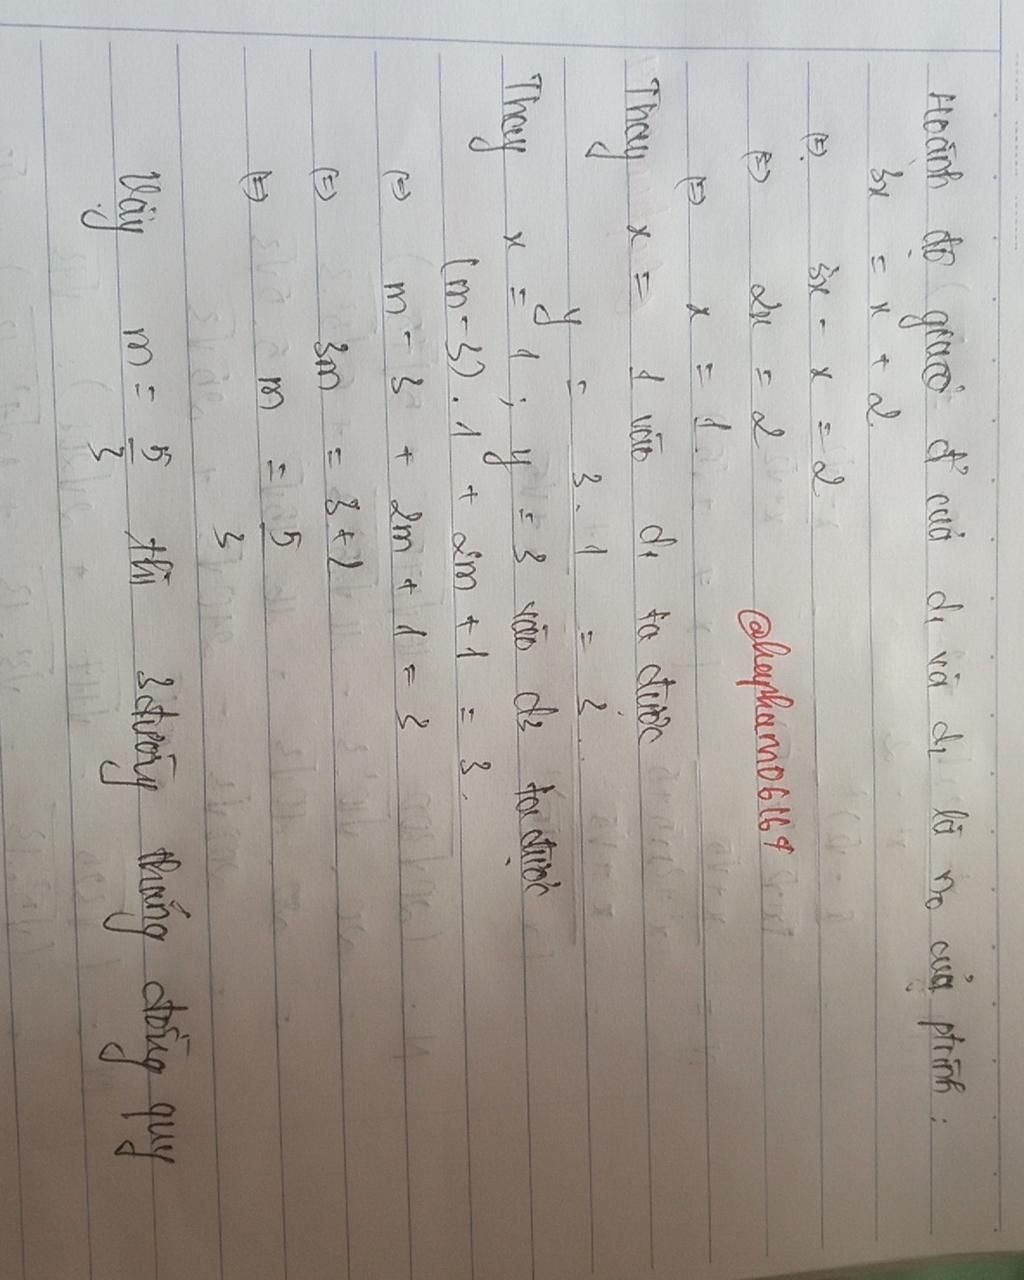 Hoành độ giao đ' của d₁ và d₂ là n₀ của ptrình :
3x = x + 2
(=) 3x - x = 2
(=) 2x = 2
@hapham06164
(=) x = 1
Thay x = 1 vào d₁ ta được
y = 3.1 = 3.
Thay x = 1 ; y = 3 vào d₃ ta được
(m-3).1 + 2m + 1 = 3.
(=) m - 3 + 2m + 1 = 3
(=) 3m = 3+2
(=) m = 5/3
Vậy m = 5/3 thì 3 đường thẳng đồng quy